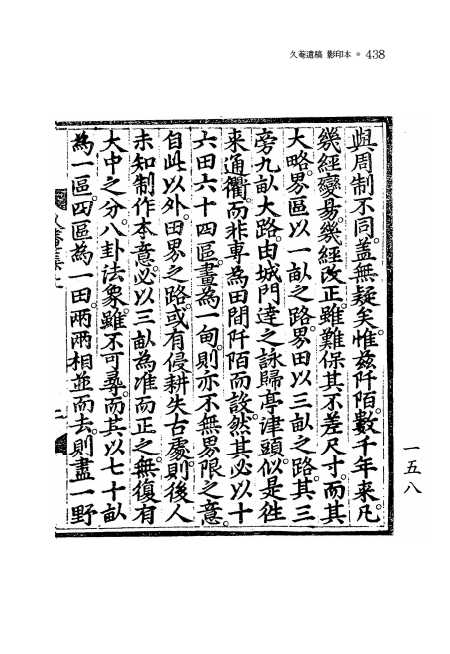 久菴遺稿 影印本 ● 438
與周制不同。盖無疑矣。惟玆阡陌。數千年來。凡
幾經變易。幾經改正。雖難保其不差尺寸。而其
大略。界區以一畝之路。界田以三畝之路。其三
旁九畝大路。由城門達之詠歸亭津頭。似是徃
來通衢。而非專為田間阡陌而設。然其必以十
六田六十四區。畫為一甸。則亦不無界限之意。
自此以外。田界之路。或有侵耕失古處。則後人
未知制作本意。必以三畝為准而正之。無復有
大中之分。八卦法象。雖不可尋。而其以七十畝
為一區。四區為一田。兩兩相並而去。則盡一野
一五八